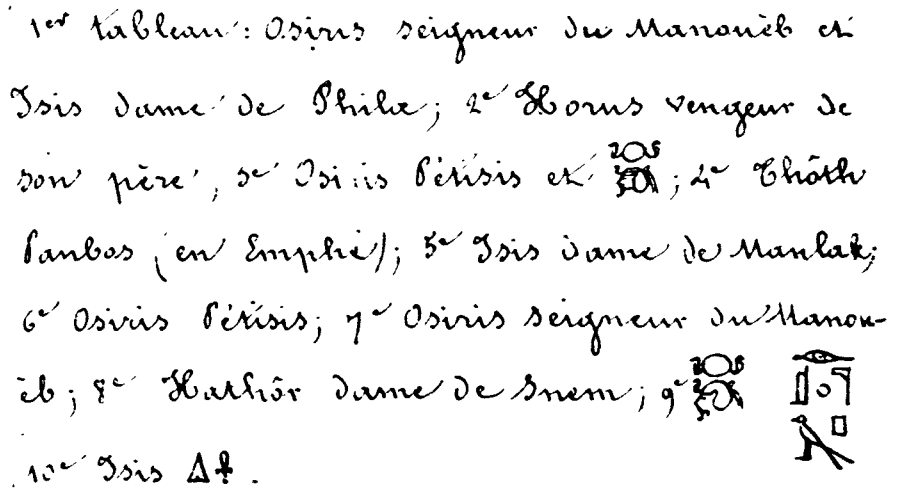 1er tableau : Osiris seigneur du Manouèb et
Isis dame de Philæ; 2e Horus vengeur de
son père, 3e Osiris Pétisis et ; 4e Thôth
Panbos (en Emphé); 5e Isis dame de Manlak;
6e Osiris Pétisis; 7e Osiris seigneur du Manou-
èb; 8e Hathôr dame de Snem; 9e
10e Isis .